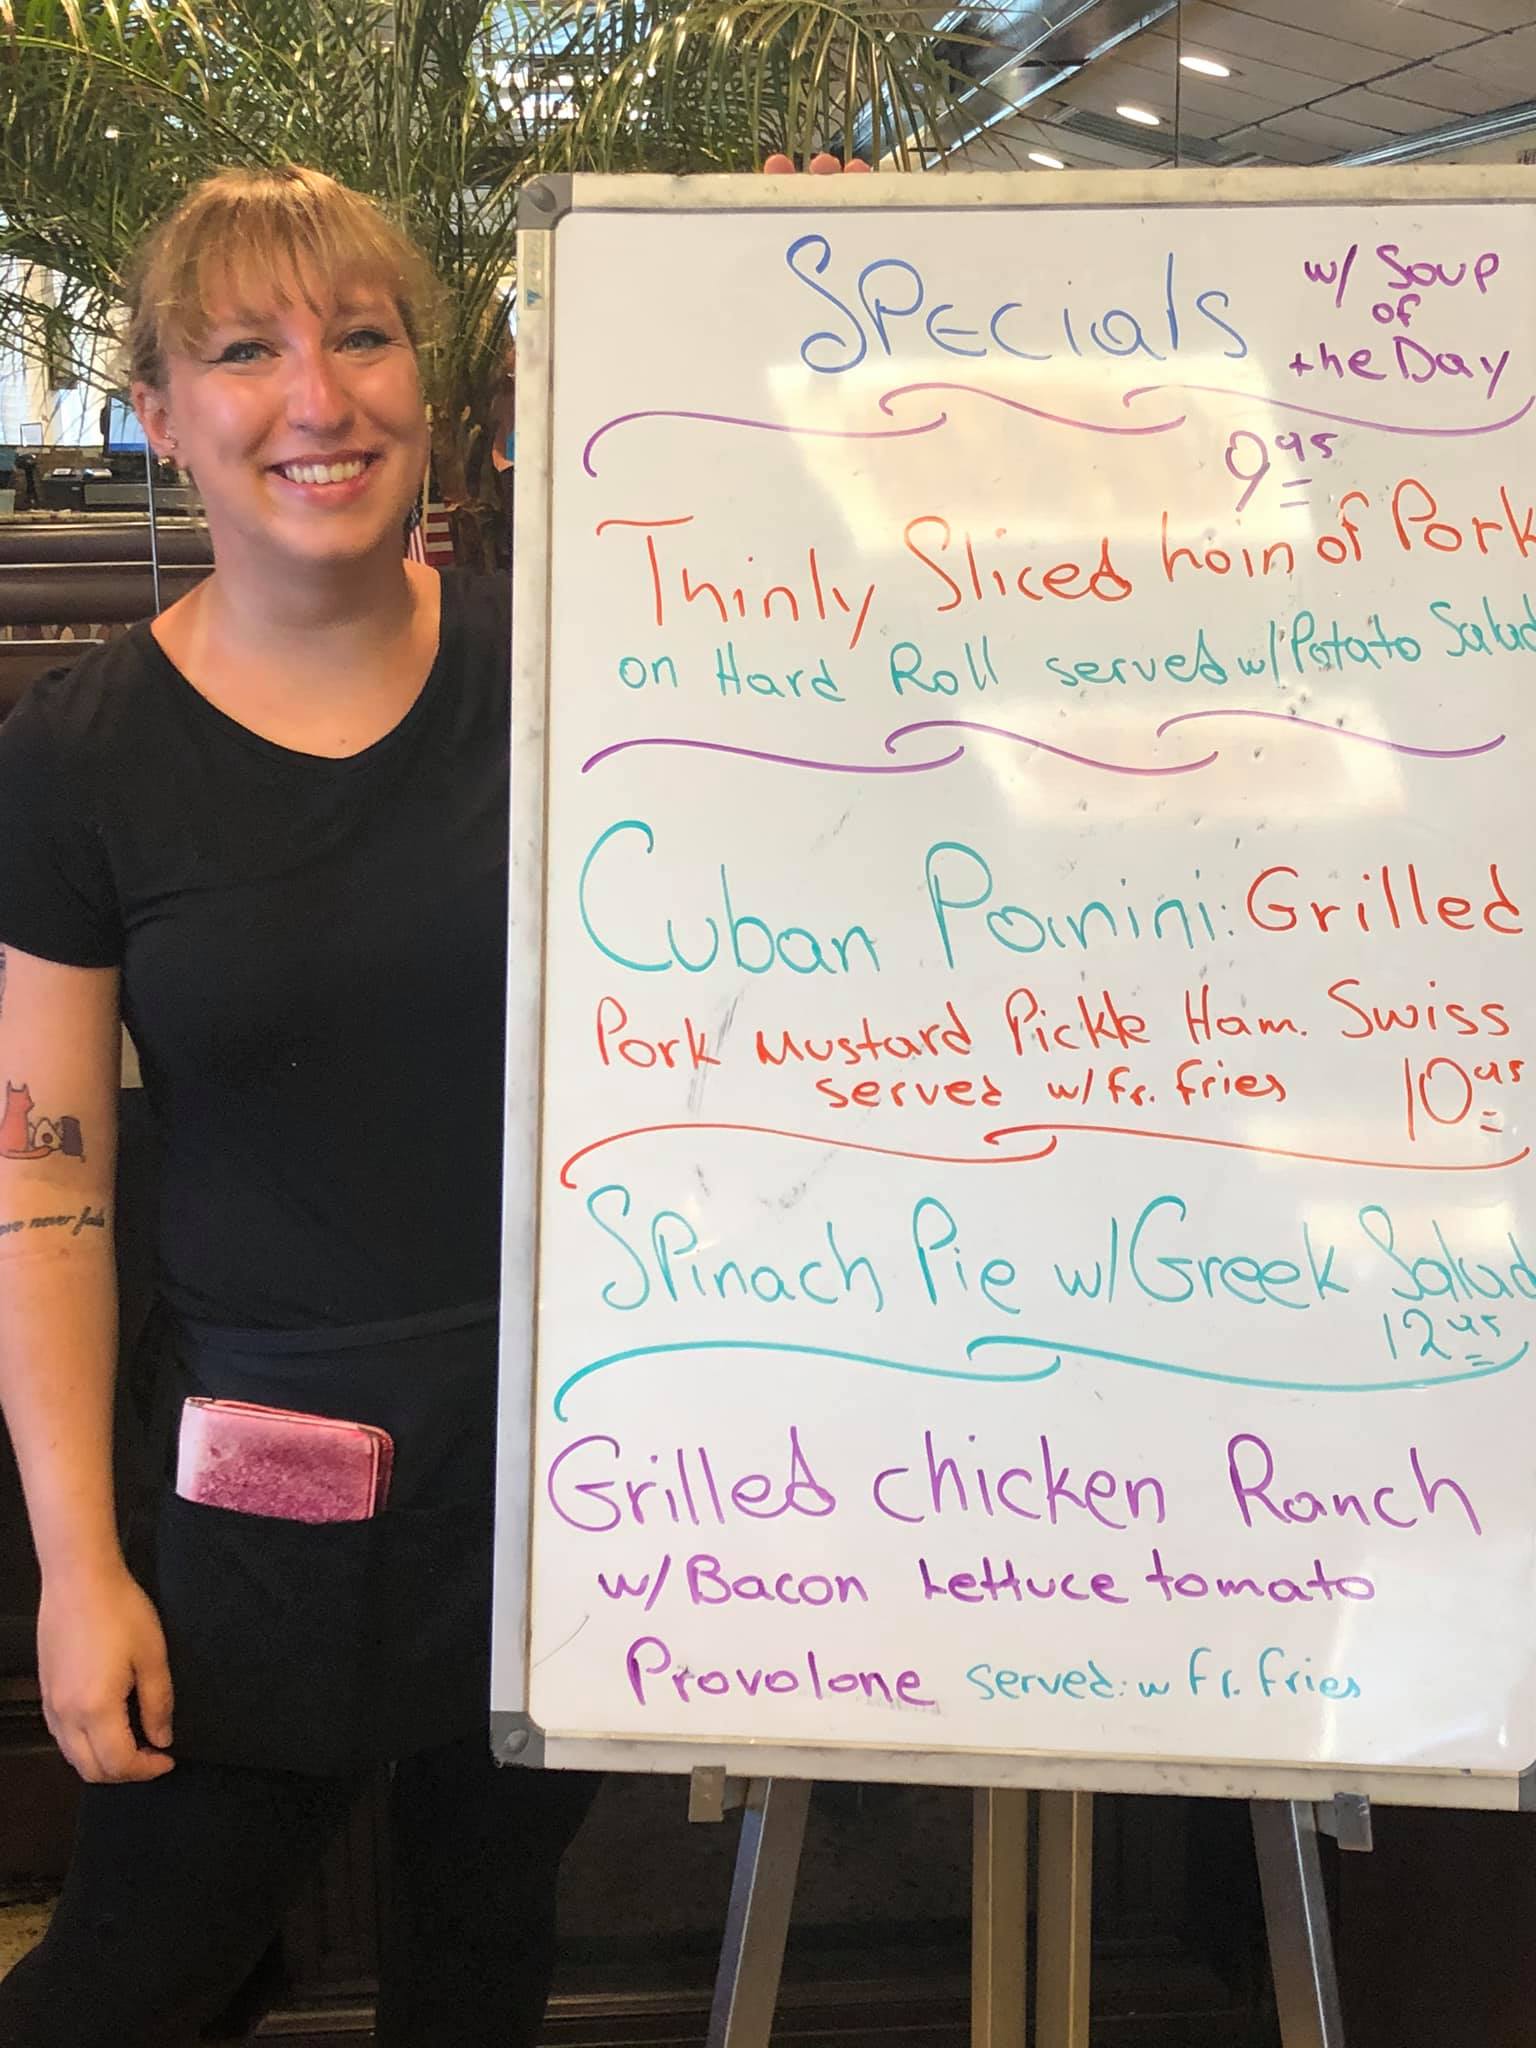 Specials
w/ Soup
of
the Day
9 95
Thinly Sliced hoin of Pork
on Hard Roll served w/ Potato Salad
Cuban Panini: Grilled
Pork Mustard Pickle Ham. Swiss
served w/ Fr. Fries 10 95
Spinach Pie w/ Greek Salad
12 95
Grilled chicken Ranch
w/ Bacon Lettuce tomato
Provolone served: w Fr. Fries
never fails